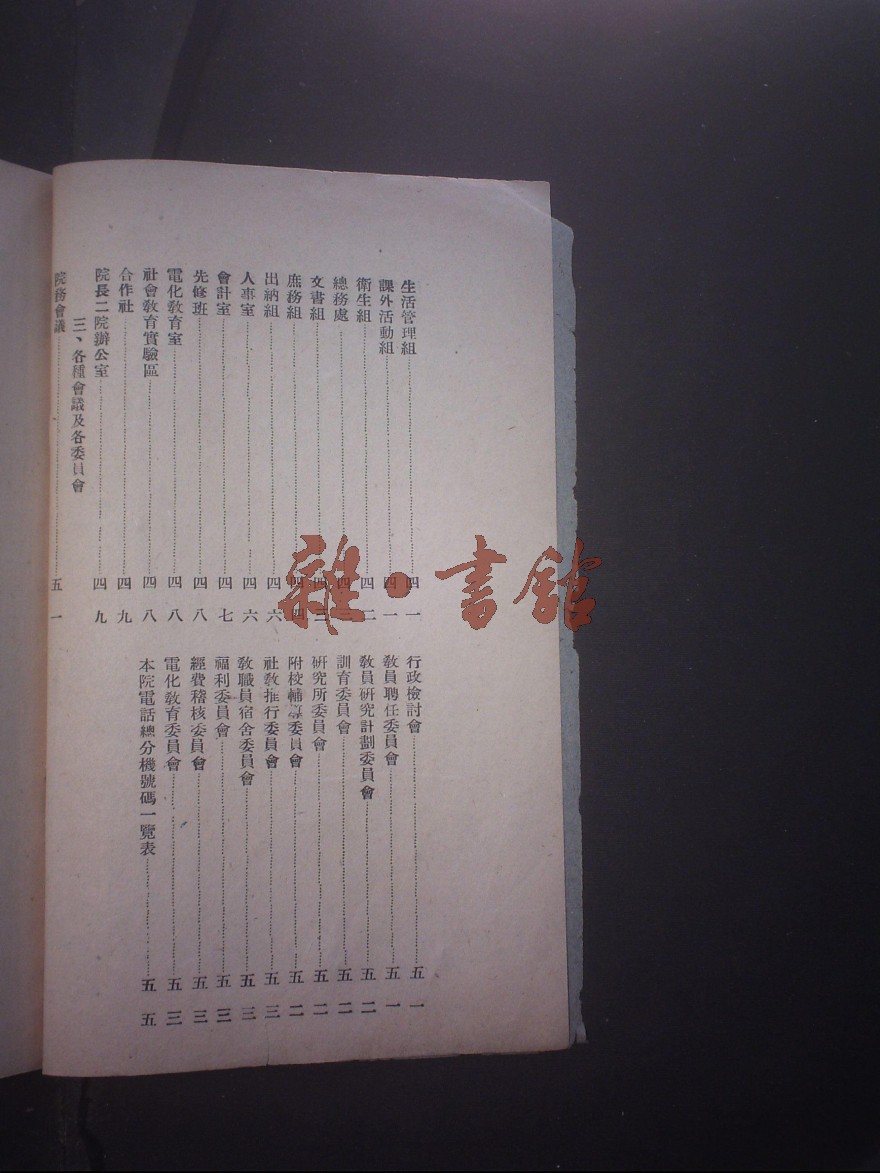 生活管理組……四一
課外活動組……四一
衛生組……四二
總務處……四二
文書組……四三
庶務組……四四
出納組……四六
人事室……四六
會計室……四七
先修班……四八
電化教育室……四八
社會教育實驗區……四八
合作社……四九
院長二院辦公室……四九
三、各種會議及各委員會
院務會議……五一
行政檢討會……五一
教員聘任委員會……五一
教員研究計劃委員會……五二
訓育委員會……五二
研究所委員會……五二
附校輔導委員會……五二
社教推行委員會……五三
教職員宿舍委員會……五三
福利委員會……五三
經費稽核委員會……五三
電化教育委員會……五三
本院電話總分機號碼一覽表……五五
雜·書館